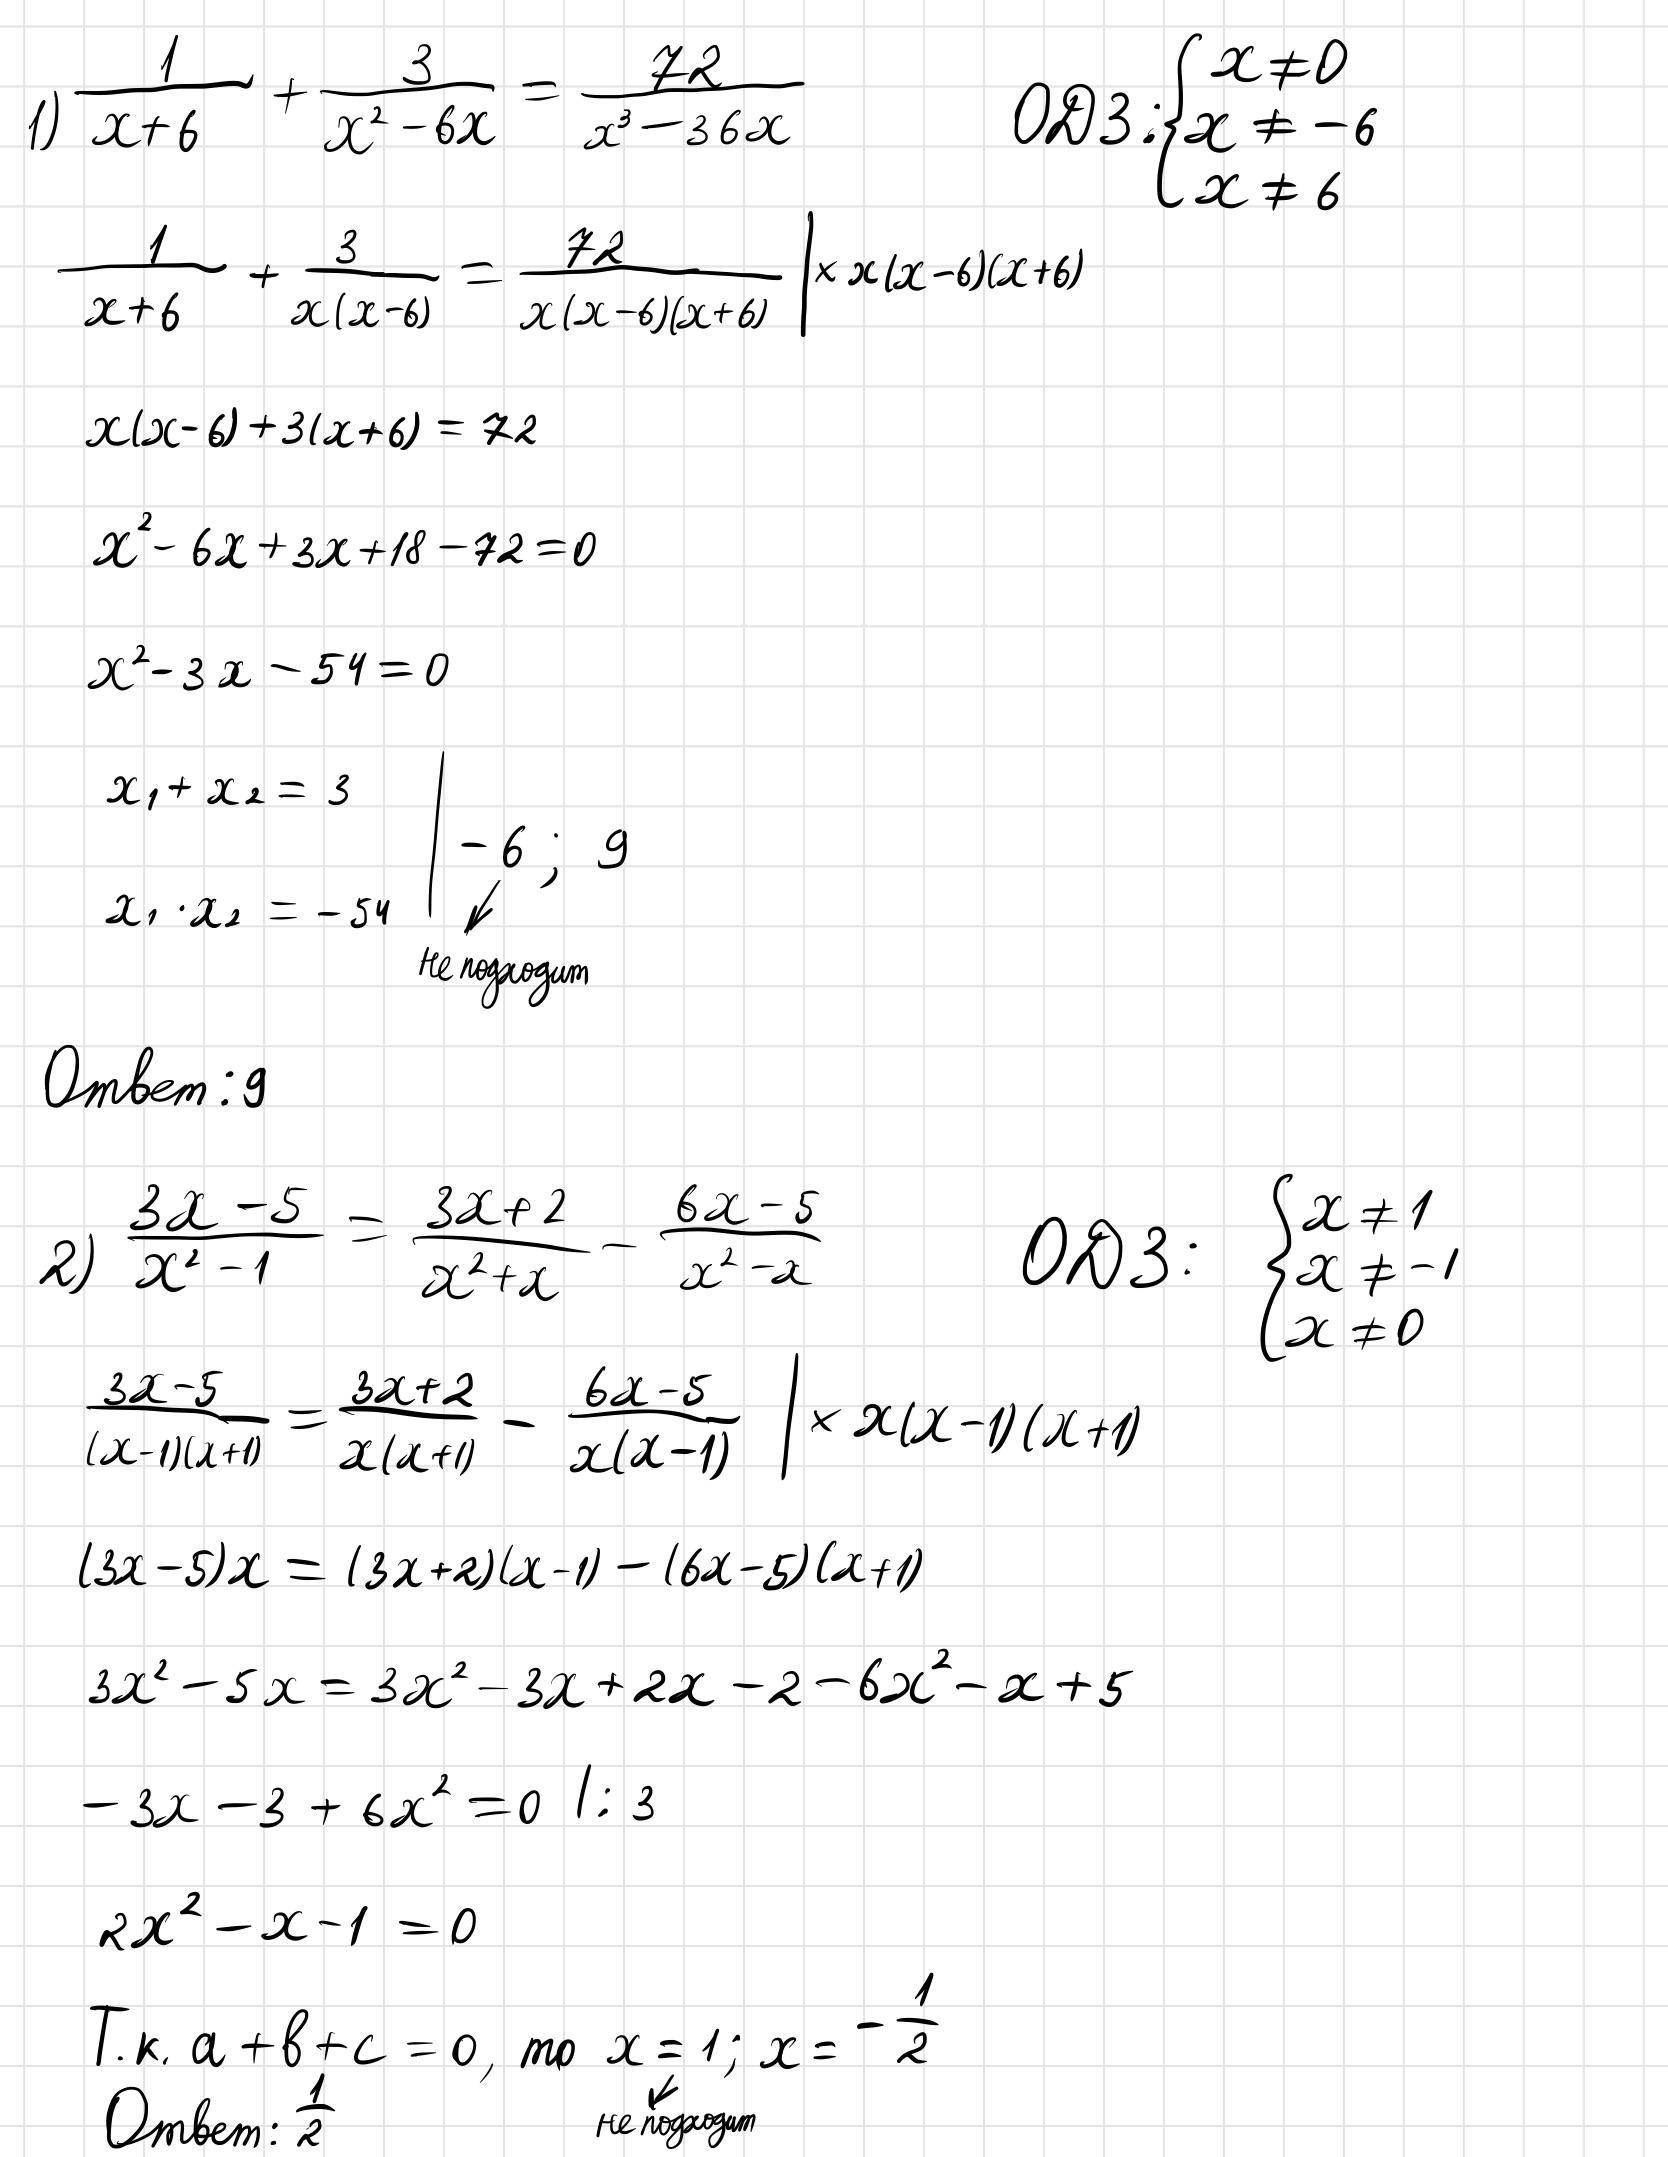 1) 1/(x+6) + 3/(x² - 6x) = 72/(x³ - 36x) ОДЗ: { x ≠ 0
x ≠ -6
x ≠ 6
1/(x+6) + 3/(x(x-6)) = 72/(x(x-6)(x+6)) | × x(x-6)(x+6)
x(x-6) + 3(x+6) = 72
x² - 6x + 3x + 18 - 72 = 0
x² - 3x - 54 = 0
x₁ + x₂ = 3
-6 ; 9
x₁ · x₂ = -54
не подходит
Ответ: 9
2) (3x-5)/(x²-1) = (3x+2)/(x²+x) - (6x-5)/(x²-x) ОДЗ: { x ≠ 1
x ≠ -1
x ≠ 0
(3x-5)/((x-1)(x+1)) = (3x+2)/(x(x+1)) - (6x-5)/(x(x-1)) | × x(x-1)(x+1)
(3x-5)x = (3x+2)(x-1) - (6x-5)(x+1)
3x² - 5x = 3x² - 3x + 2x - 2 - 6x² - x + 5
-3x - 3 + 6x² = 0 |: 3
2x² - x - 1 = 0
Т.к. a+b+c = 0, то x = 1; x = -1/2
не подходит
Ответ: 1/2